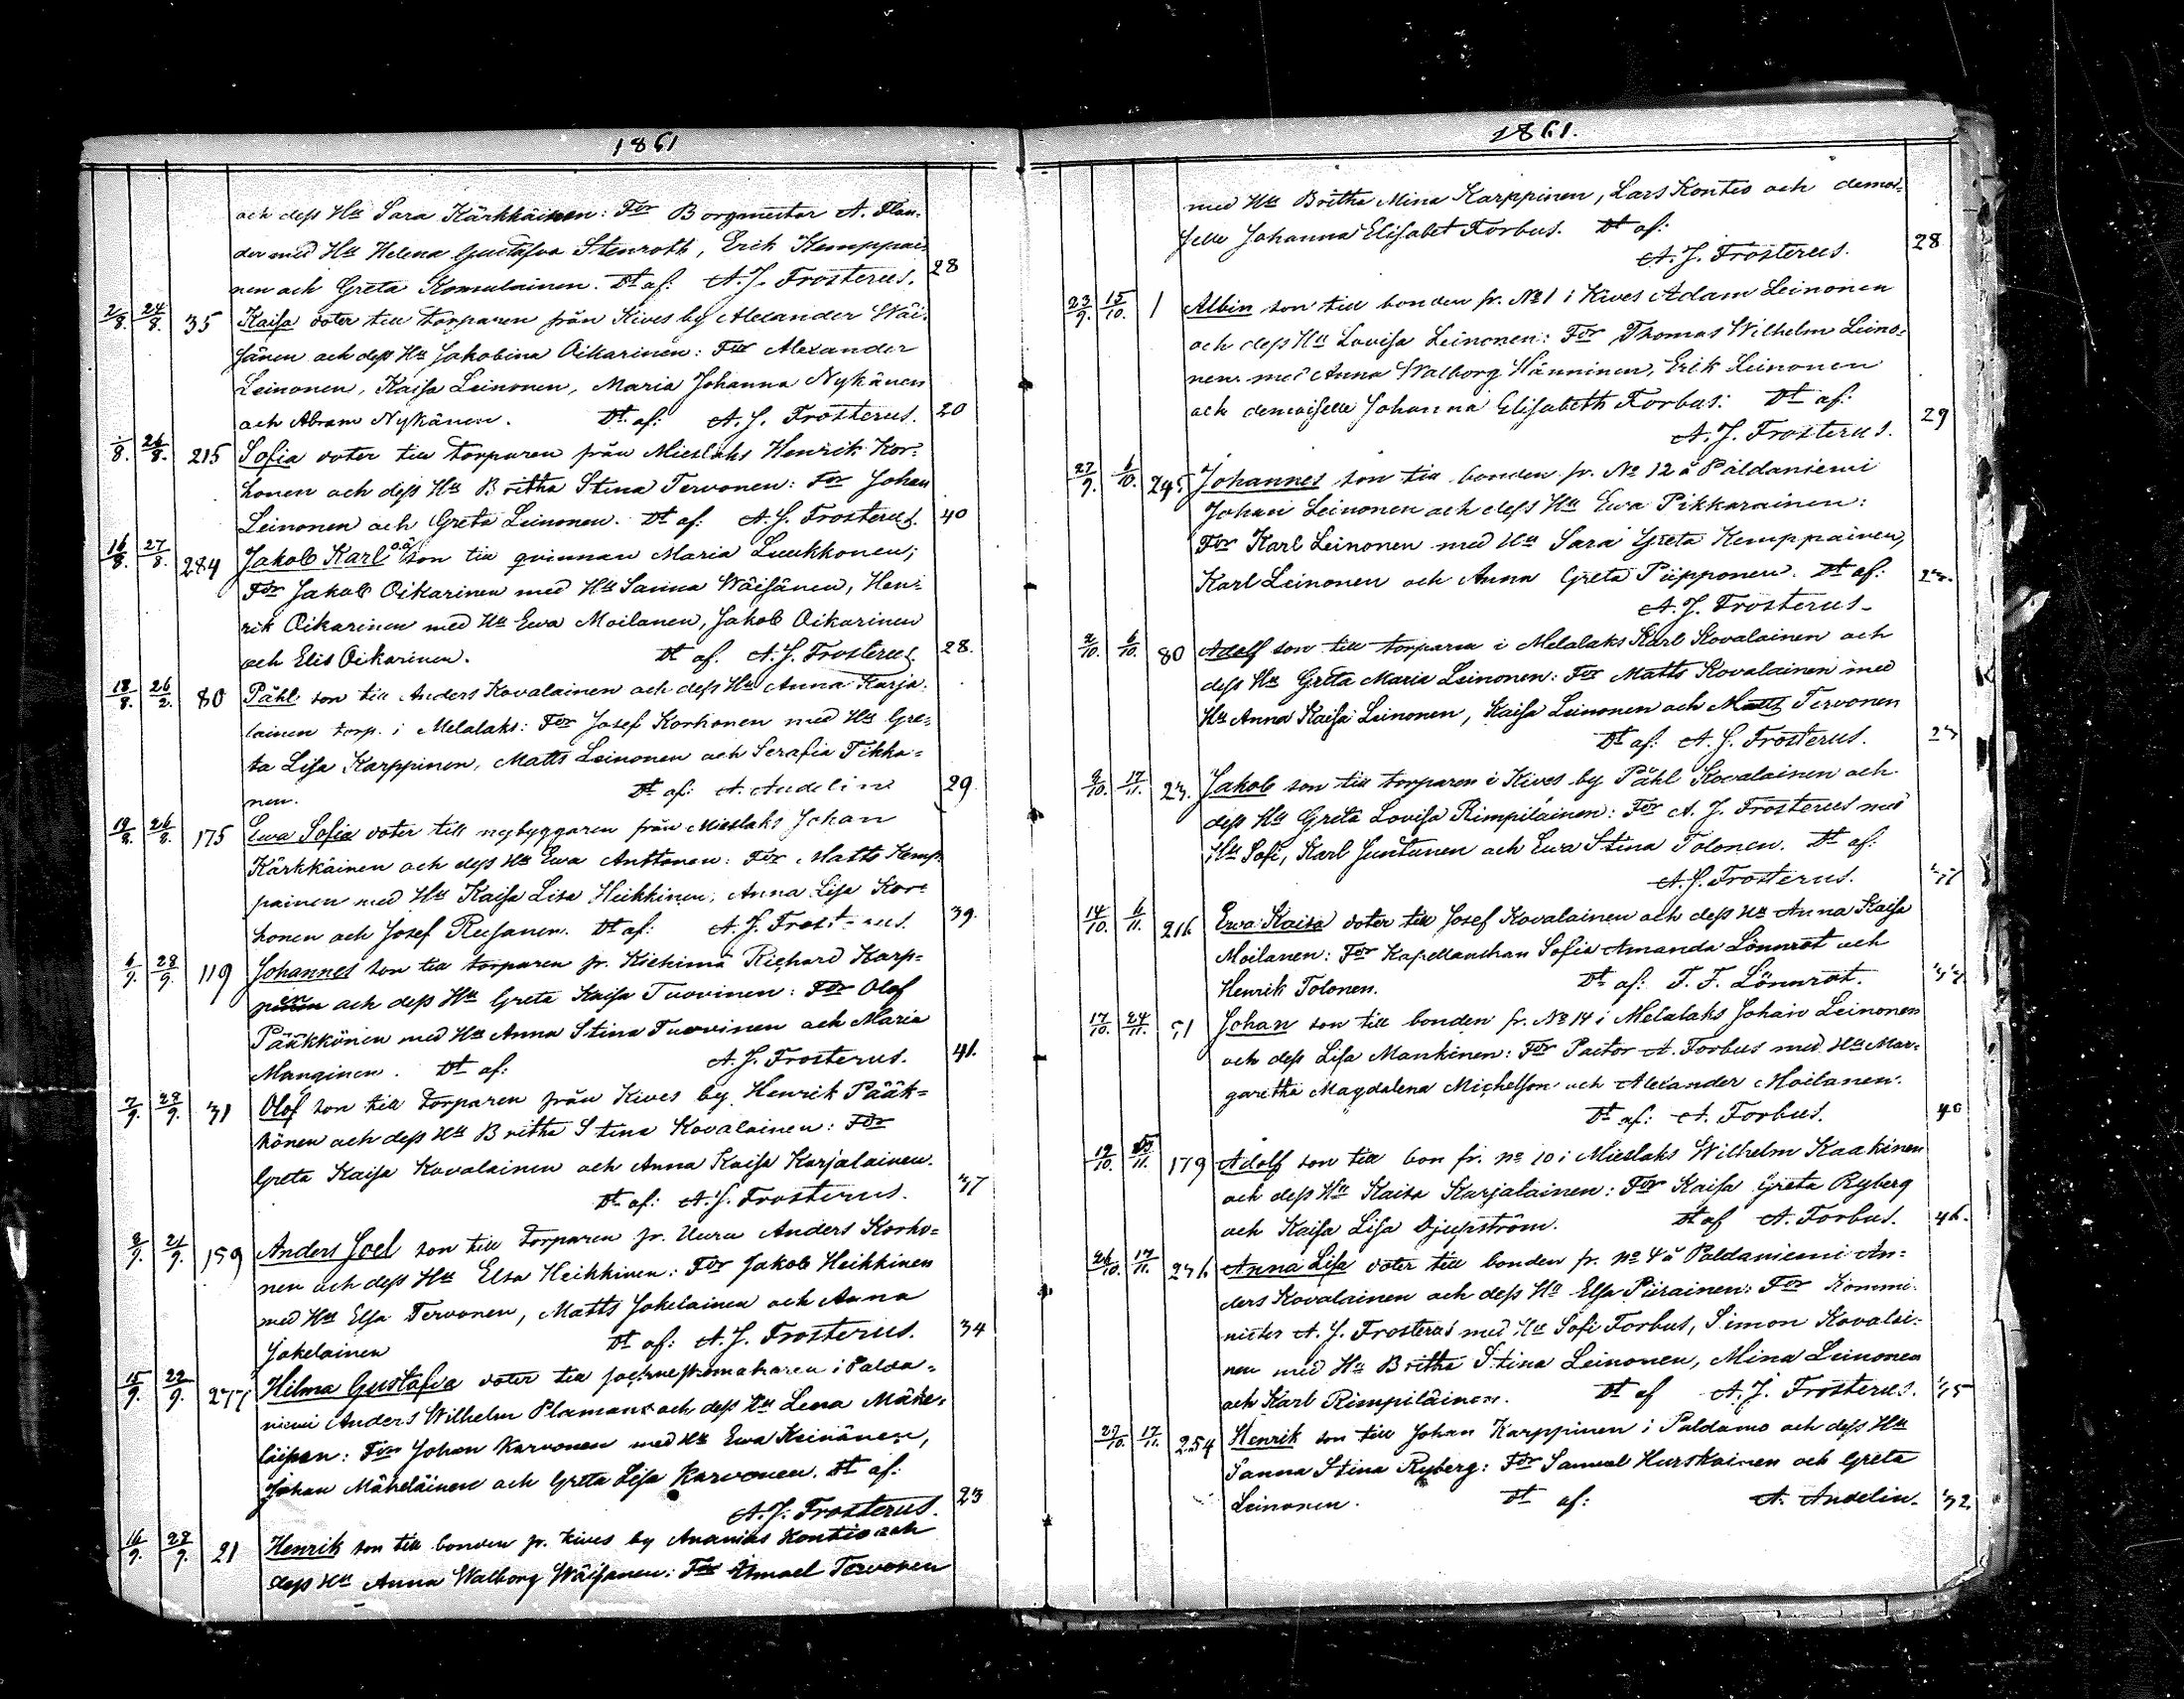 1861
och dess Hu Sara Kärkkäinen: For Borgmestar A. Flan-
der med Hu Helena Gustafva Stenroth, Erik Kemppai-
nen och Greta Komulainen. Dt af: A. J. Frosterus. 28
2/8. 24/8. 35 Kaisa doter till torparen från Kives by Alexander Wäi-
sänen och dess Hu Jakobina Oikarinen: For Alexander
Leinonen, Kaisa Leinonen, Maria Johanna Nykänen
och Abram Nykänen. Dt af: A. J. Frosterus. 20
/8. 26/8. 215 Sofia doter till torparen från Mieslaks Henrik Kor-
honen och dess Hu Britha Stina Tervonen: For Johan
Leinonen och Greta Leinonen. Dt af: A. J. Frosterus. 40
16/8. 27/8. 284 Jakob Karl o.ä son till qvinnan Maria Luukkonen;
For Jakob Oikarinen med Hu Sanna Wäisänen, Hen-
rik Oikarinen med Hu Ewa Moilanen, Jakob Oikarinen
och Elis Oikarinen. Dt af. A. J. Frosterus. 28.
18/8. 26/2. 80 Påhl son till Anders Kovalainen och dess Hu Anna Karja-
lainen torp. i Melalaks: For Josef Korhonen med Hu Gre-
ta Lisa Karppinen, Matts Leinonen och Serafia Tikka-
nen. Dt af: A. Andelin 29
19/8. 26/8. 175 Ewa Sofia doter till nybyggaren från Mieslaks Johan
Kärkkäinen och dess Hu Ewa Anttonen: For Matts Kemp-
painen med Hu Kaisa Lisa Heikkinen, Anna Lisa Kor-
honen och Josef Reusanen. Dt af: A. J. Frosterus. 39.
6/9. 28/9. 119 Johannes son till torparen fr. Kiehimä Richard Karp-
pinen och dess Hu Greta Kaisa Tuovinen: For Olof
Pääkkönen med Hu Anna Stina Tuovinen och Maria
Manginen. Dt af: A. J. Frosterus. 41.
7/9. 28/9. 31 Olof son till Torparen från Kives by Henrik Pääk-
könen och dess Hu Britha Stina Kovalainen: For
Greta Kaisa Kovalainen och Anna Kaisa Karjalainen.
Dt af: A. J. Frosterus. 37
8/9. 21/9. 159 Anders Joel son till Torparen fr. Uura Anders Korho-
nen och dess Hu Elsa Heikkinen: For Jakob Heikkinen
med Hu Elsa Tervonen, Matts Jokelainen och Anna
Jokelainen Dt af: A. J. Frosterus. 34
15/9. 22/9. 277 Hilma Gustafva doter till sockneskomakaren i Palda-
niemi Anders Wilhelm Planman och dess Hu Lena Mäke-
läinen: For Johan Karvonen med Hu Ewa Keinänen,
Johan Mäkeläinen och Greta Lisa Karvonen. Dt af:
A. J. Frosterus. 23
16/9. 28/9. 21 Henrik son till bonden fr. Kives by Ananias Kontio och
dess Hu Anna Walborg Wäisänen: For Ismael Tervonen
1861.
med Hu Britha Mina Karppinen, Lars Kontio och demoi-
selle Johanna Elisabet Forbus. Dt af:
A. J. Frosterus. 28
23/9. 15/10. 1 Albin son till bonden fr. No 1 i Kives Adam Leinonen
och dess Hu Lovisa Leinonen: For Thomas Wilhelm Leino-
nen med Anna Walborg Hänninen, Erik Leinonen
och demoiselle Johanna Elisabeth Forbus: Dt af:
A. J. Frosterus. 29
27/9. 6/10. 245 Johannes son till bonden fr. No 12 å Paldaniemi
Johan Leinonen och dess Hu Ewa Pikkarainen:
For Karl Leinonen med Hu Sara Greta Kemppainen,
Karl Leinonen och Anna Greta Piipponen. Dt af:
A. J. Frosterus.
2/10. 6/10. 80 Adolf son till torparen i Melalaks Karl Kovalainen och
dess Hu Greta Maria Leinonen: For Matts Kovalainen med
Hu Anna Kaisa Leinonen, Kaisa Leinonen och Matts Tervonen
Dt af: A. J. Frosterus. 23
9/10. 17/11. 23. Jakob son till torparen i Kives by Påhl Kovalainen och
dess Hu Greta Lovisa Rimpiläinen: For A. J. Frosterus med
Hu Sofi, Karl Juntunen och Ewa Stina Tolonen. Dt af:
A. J. Frosterus.
14/10. 6/11. 216 Ewa Kaisa doter till Josef Kovalainen och dess Hu Anna Kaisa
Moilanen: For Kapellanskan Sofia Amanda Lönnrot och
Henrik Tolonen. Dt af: F. F. Lönnrot.
17/10. 24/11. 51 Johan son till bonden fr. No 14 i Melalaks Johan Leinonen
och dess Lisa Mankinen: For Pastor A. Forbus med Hu Mar-
garetha Magdalena Michelson och Alexander Moilanen.
Dt af: A. Forbus. 40
19/10. /11. 179 Adolf son till bon fr. no 10 i Mieslaks Wilhelm Kaakinen
och dess Hu Kaisa Karjalainen: For Kaisa Greta Ryberg
och Kaisa Lisa Djupström. Dt af A. Forbus. 46.
26/10. 17/11. 236 Anna Lisa doter till bonden fr. no 4 å Paldaniemi An-
ders Kovalainen och dess Hu Elsa Piirainen: For Kommi-
nister A. J. Frosterus med Hu Sofi Forbus, Simon Kovalai-
nen med Hu Britha Stina Leinonen, Mina Leinonen
och Karl Rimpiläinen. Dt af A. J. Frosterus. 35
27/10. 17/11. 254 Henrik son till Johan Karppinen i Paldamo och dess Hu
Sanna Stina Ryberg: For Samuel Hurskainen och Greta
Leinonen. Dt af: A. Andelin. 32.